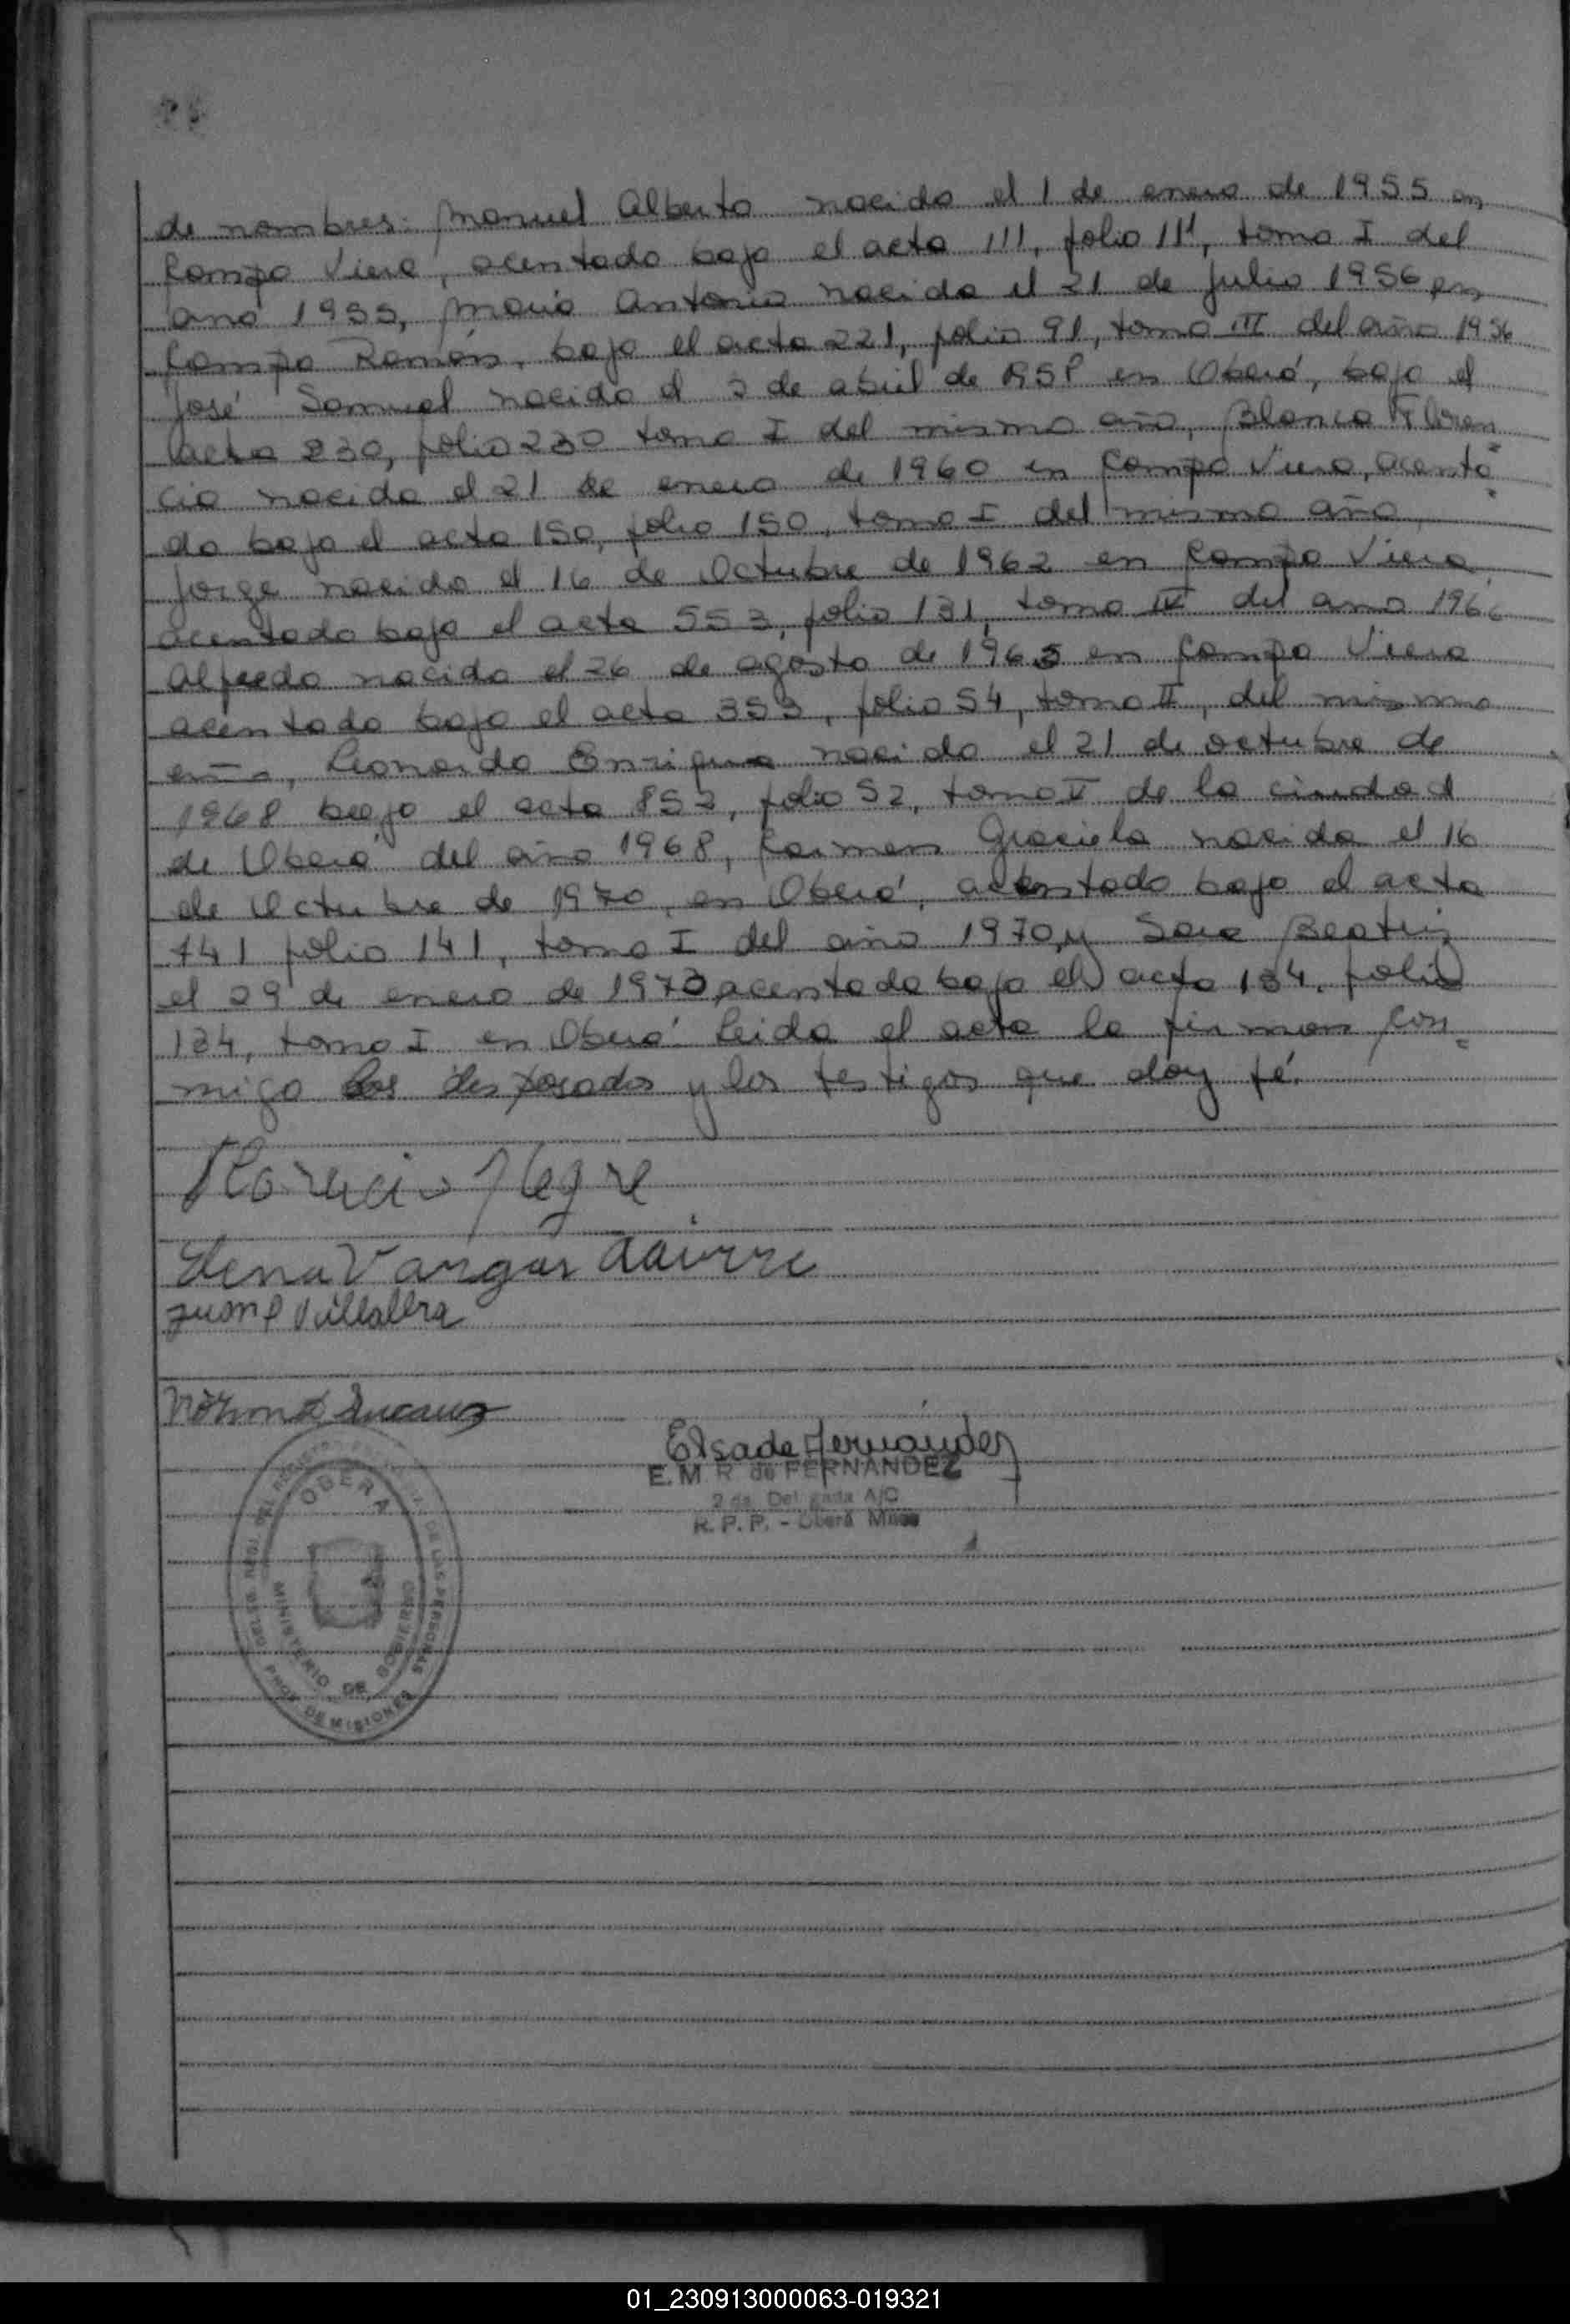 de nombres: Manuel Alberto nacido el 1 de enero de 1955 en
Campo Viera, acentado bajo el acta 111, folio 111, tomo I del
año 1955, Mario Antonio nacido el 21 de julio 1956 en
Campo Ramón, bajo el acta 221, folio 91, tomo III del año 1956
José Samuel nacido el 2 de abril de 1958 en Oberá, bajo el
acta 230, folio 230 tomo I del mismo año, Blanca Floren
cia nacida el 21 de enero de 1960 en Campo Viera, acenta
do bajo el acta 150, folio 150, tomo I del mismo año,
Jorge nacido el 16 de Octubre de 1962 en Campo Viera
acentado bajo el acta 553, folio 131, tomo IV del ano 1966
Alfredo nacido el 26 de agosto de 1965 en Campo Viera
acentado bajo el acta 353, folio 54, tomo II, del mismo
año, Leonardo Enrique nacido el 21 de octubre de
1968 bajo el acta 852, folio 52, tomo V de la ciudad
de Oberá del año 1968, Carmen Graciela nacida el 16
de Octubre de 1970, en Oberá, acentado bajo el acta
741 folio 141, tomo I del año 1970, y Sara Beatriz
el 29 de enero de 1973 acentada bajo el acta 134, folio
134, tomo I en Oberá. Leida el acta la firman con
migo los desposados y los testigos que doy fé.
Elena Vargas Aguirre
Juan P Villalba
Norma
Elsa de Fernández
E. M. R. de FERNANDEZ
2 da. Delegada A/C
R. P. P. - Oberá Mnes
OBERA
MINISTERIO DE GOBIERNO
DE LAS PERSONAS
PROV. DE MISIONES
01_230913000063-019321